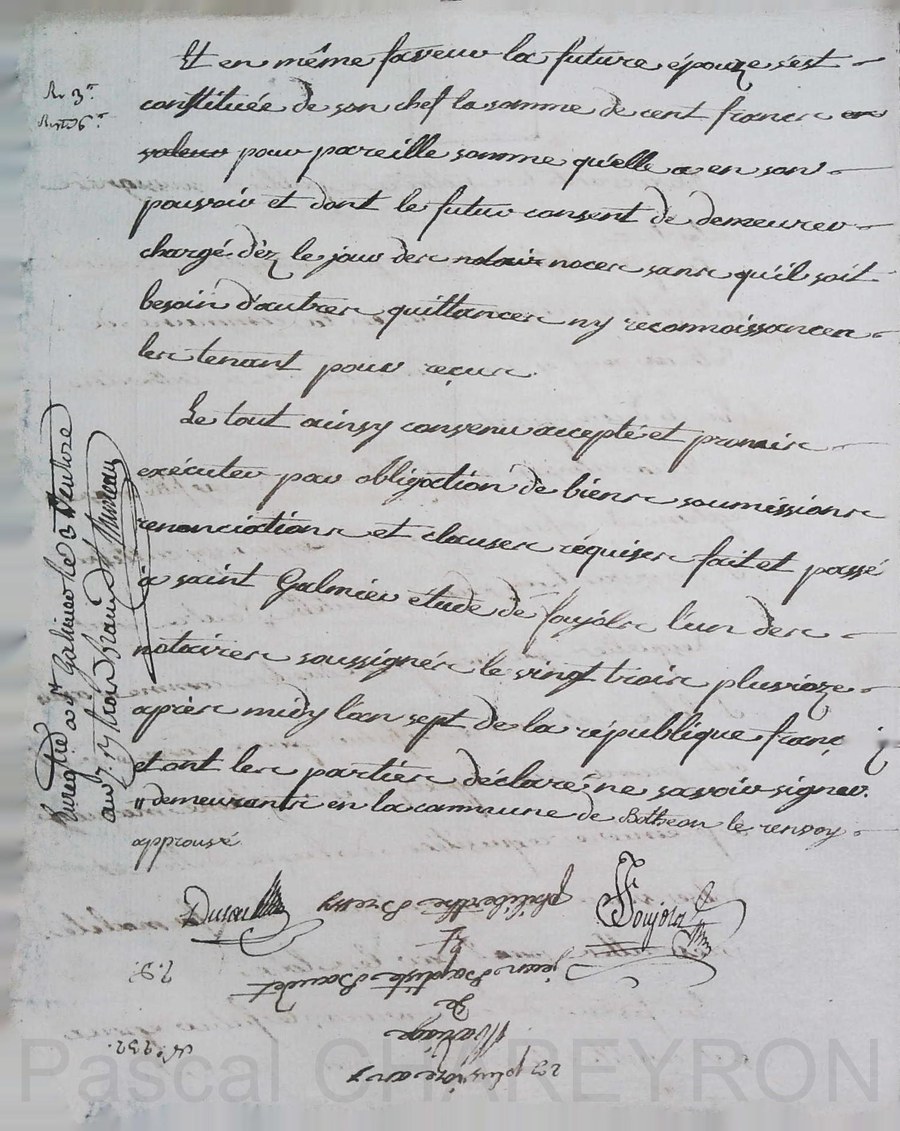 Et en même faveur la future épouze s'est
constituée de son chef la somme de cent francs en
valeur pour pareille somme qu'elle a en son
pouvoir et dont le futur consent de demeurer
chargé déz le jour des notair noces sans qu'il soit
besoin d'autres quittances ny reconnoissances
les tenant pour reçus
Le tout ainsy convenu accepté et promis
exécuter par obligation de biens soumissions
renonciations et clauses requises fait et passé
a saint Galmier étude de foujols l'un des
notaires soussignés le vingt trois pluvioze
après midy l'an sept de la république franç
et ont les parties déclaré ne savoir signer.
" demeurants en la commune de Botheon le renvoy
approuvé
Enregtré a St Galmier le 3 Ventose
an 7.
Foujols
philiberthe Bressy
et
jean Baptiste Baudet
De
Mariage
23 pluvioze an 7
No. 232.
Pascal CHAREYRON